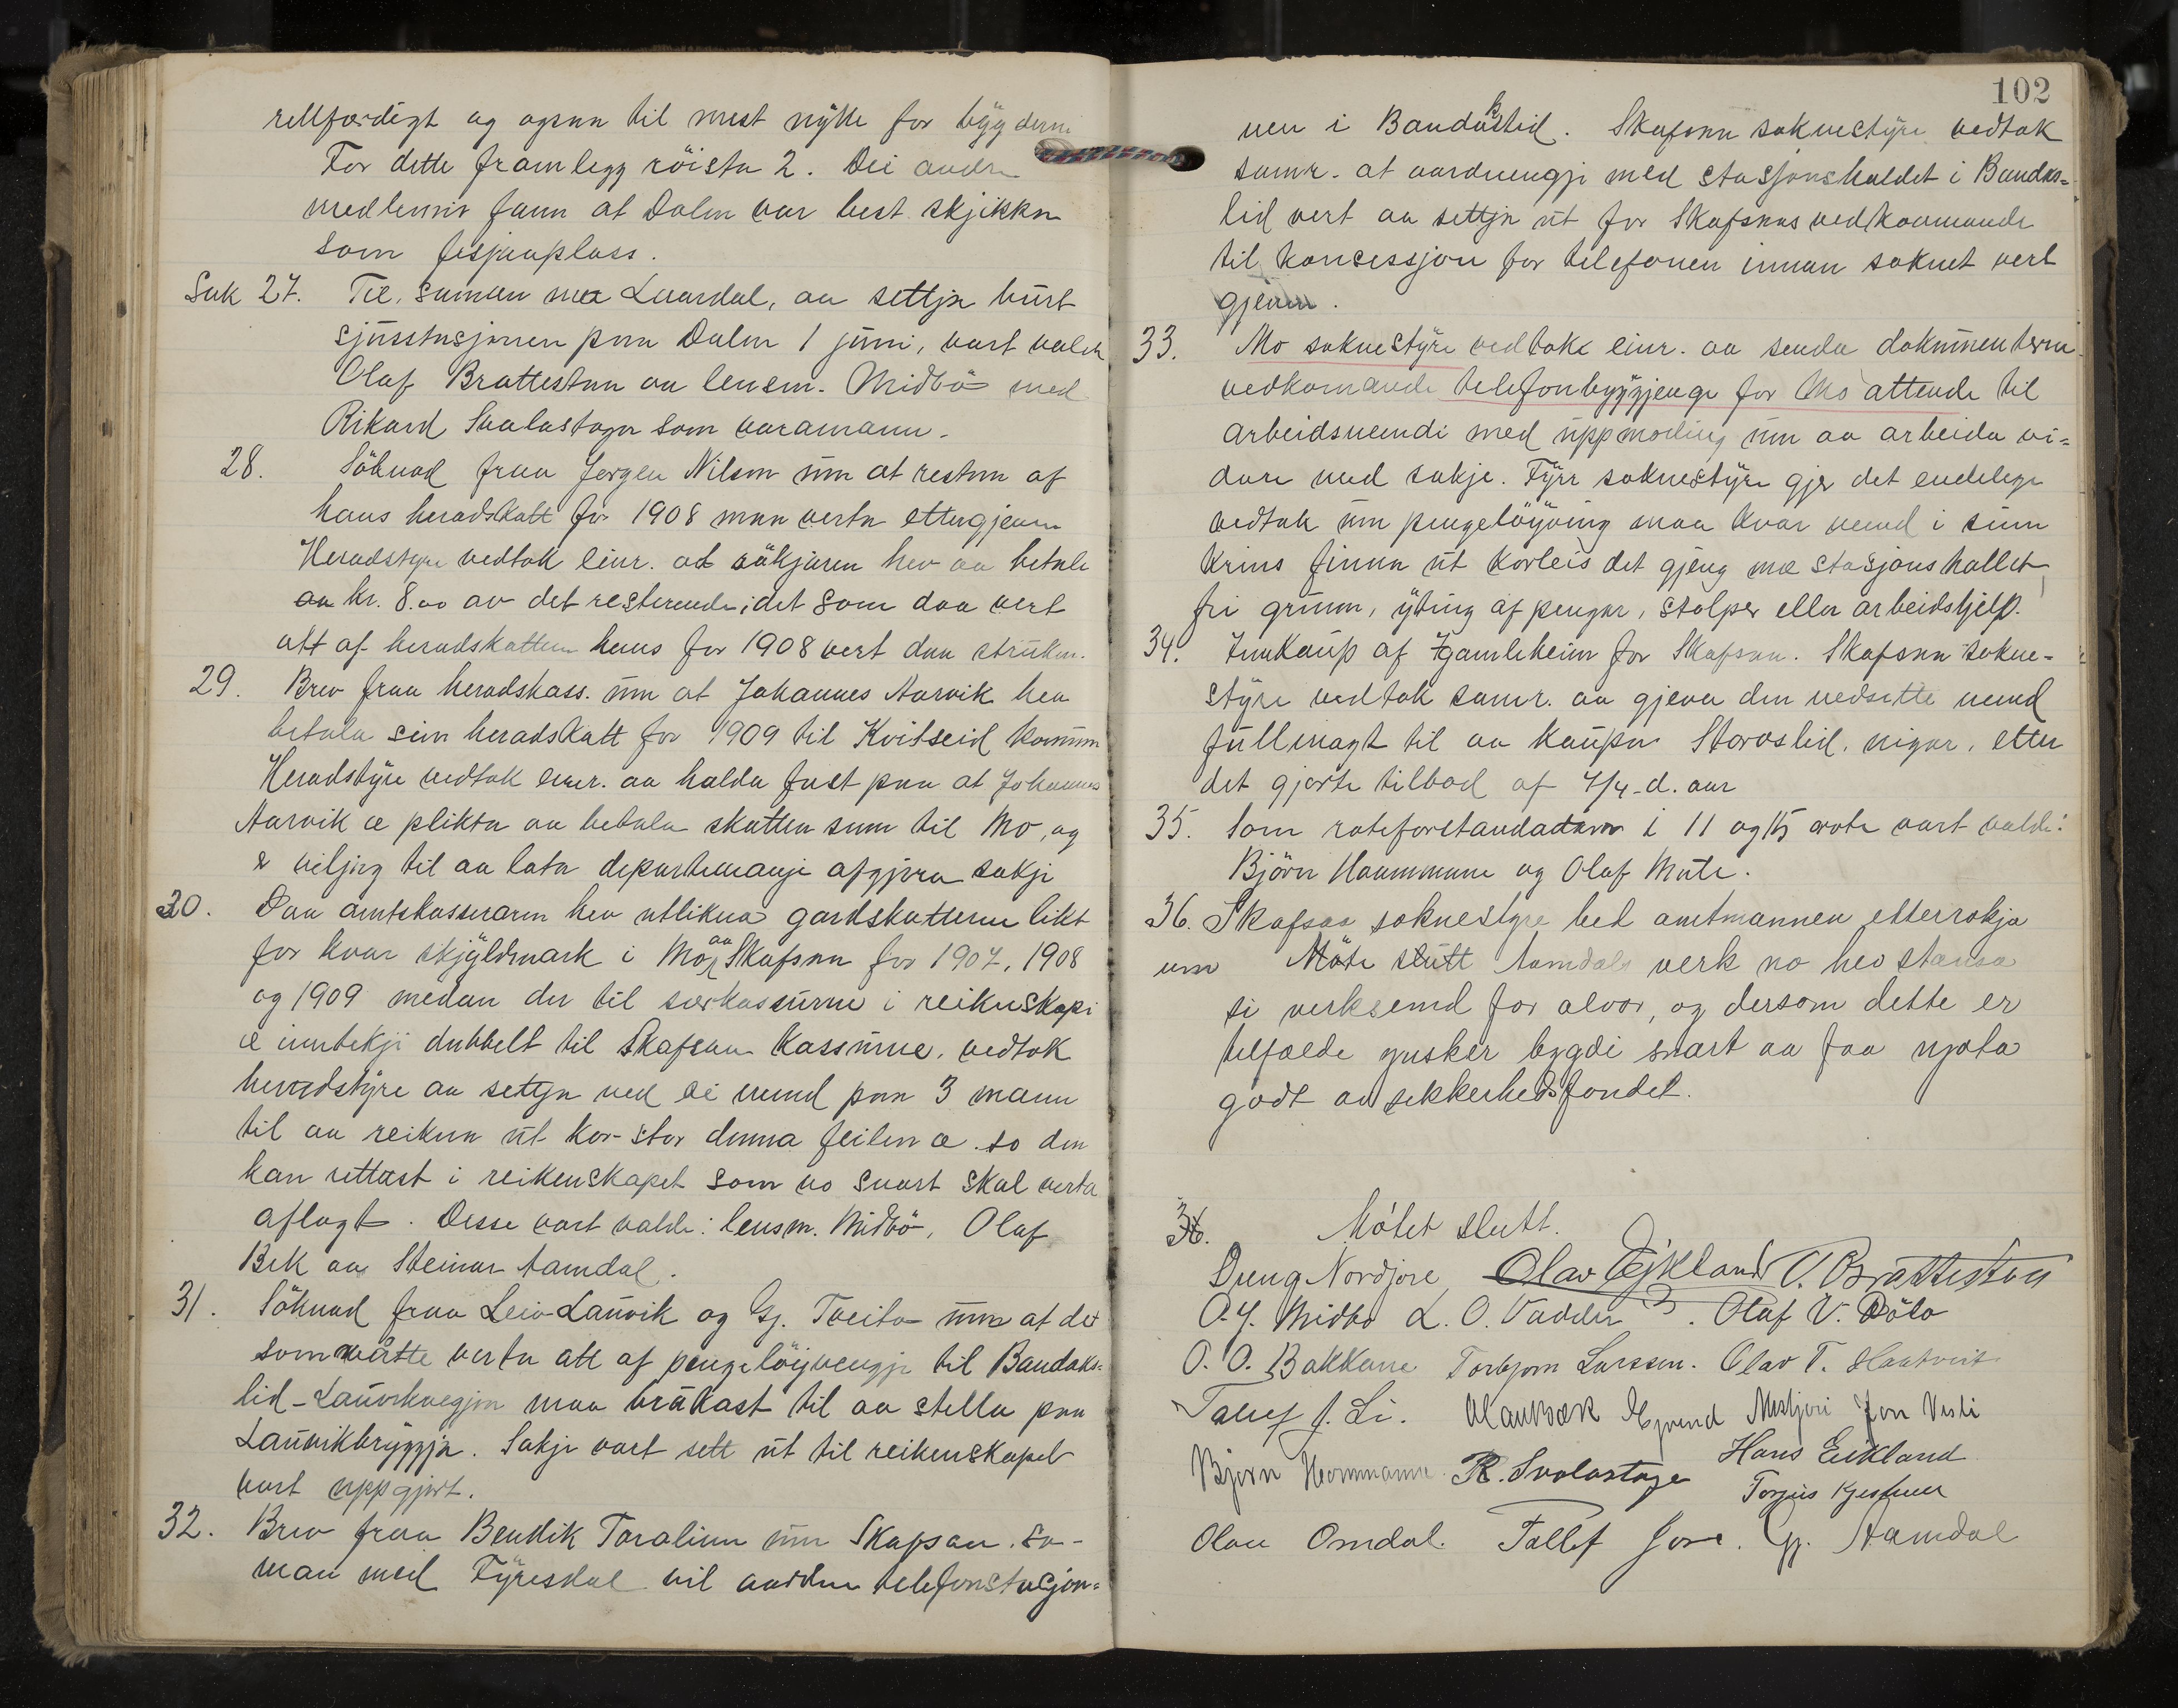 rettferdigt og ogsaa til mest nytte for bygderne
For dette framlegg röista 2. Dei andre
medlemir fann at Dalen var best skjikka
som fesjaaplass.
Sak 27. Til, saman mæ Laardal, aa settja burt
sjusstasjonen paa Dalen 1 juni, vart valde
Olaf Brattestaa aa lensm. Midbö med
Rikard Svalastoga som varamann.
28. Söknad fraa Jørgen Nilsen um at resten af
hans heradskatt for 1908 maa verta ettergjeven
Heradstyre vedtok einr. at søkjaren hev aa betale
kr. 8.00 av det resterende; det som daa vert
att af heradskatten hans for 1908 vert daa struken.
29. Brev fraa heradskass. um at Johannes Aarvik hev
betala sin heradskatt for 1909 til Kvitseid kommun
Heradstyre vedtok einr. aa halda fast paa at Johannes
Aarvik æ plikta aa betala skatten sinn til Mo, og
e viljug til aa lata departemangje afgjera sakji
30. Daa amtskasseraren hev utlikna gardskatterne likt
for kvar skjyldmark i Mo aa Skafsaa for 1907, 1908
og 1909 medan der til særkassurne i reikneskapi
æ inntekji dubbelt til Skafsaa kassurne, vedtok
heradstyre aa setja ned ei nemd paa 3 mann
til aa reikna ut kor stor denna feilen æ so den
kan rettast i reikenskapet som no snart skal verta
aflagt. Desse vart valde: lensm. Midbö, Olaf
Bek aa Steinar Aamdal.
31. Söknad fraa Leiv Lauvik og Gj. Tveito um at det
som maatte verta att af pengelöyvengje til Bandaks-
lid-Lauvikvegjen maa brukast til aa stella paa
Lauvikbryggja. Sakji vart sett ut til reikenskapet
vart uppgjort.
32. Brev fraa Bendik Taraldlien um Skafsaa, sa-
man med Fyresdal vil aardne telefonstasjon-
102
nen i Bandakslid. Skafsaa soknestyre vedtok
samr. at aardnengji med stasjonshaldet i Bandaks-
lid vert aa settja ut for Skafsaas vedkoamande
til koncessjon for telefonen innan soknet vert
gjeven.
33. Mo soknestyre vedtok einr. aa senda dokumenterne
vedkomande telefonbyggjenge for Mo attende til
arbeidsnemdi med uppmoding um aa arbeida vi-
dare med sakje. Fyrr soknestyre gjer det endelege
vedtak um pengelöyving maa kvar nemd i sinn
krins finna ut korleis det gjeng mæ stasjonshallet
fri grunn, yting af pengar, stolper eller arbeidshjelp.
34. Innkaup af gamleheim for Skafsaa. Skafsaa sokne-
styre vedtok samr. aa gjeva den nedsette nemd
fullmagt til aa kaupa Storoslid, nigar, etter
det gjorte tilbod af 4/4 d. aar
35. Som roteforstandar i 11 og 15 rote vart valde:
Björn Haammune og Olaf Mute.
36. Skafsaa soknestyre bed amtmannen etterrøkja
um Möte slutt Aamdals verk no hev stansa
si verksemd for alvor, og dersom dette er
telfælde ynsker bygdi snart aa faa njota
godt av sekkerhedsfondet.
36. Mötet slutt.
Dreng Nordjore Olav Eikland O. Brattestaa
O. G. Midbö L. O. Vadder. Olaf V. Döla
O. O. Bakkane Torbjørn Larssen. Olav T. Haatveit
Tallef J. Li. Eyvind Mostjøri Jon Visli
Bjørn Hommanne R. Svalastoga Hans Eikland
Torgius
Olav Omdal. Tallef Jore. Gj. Aamdal